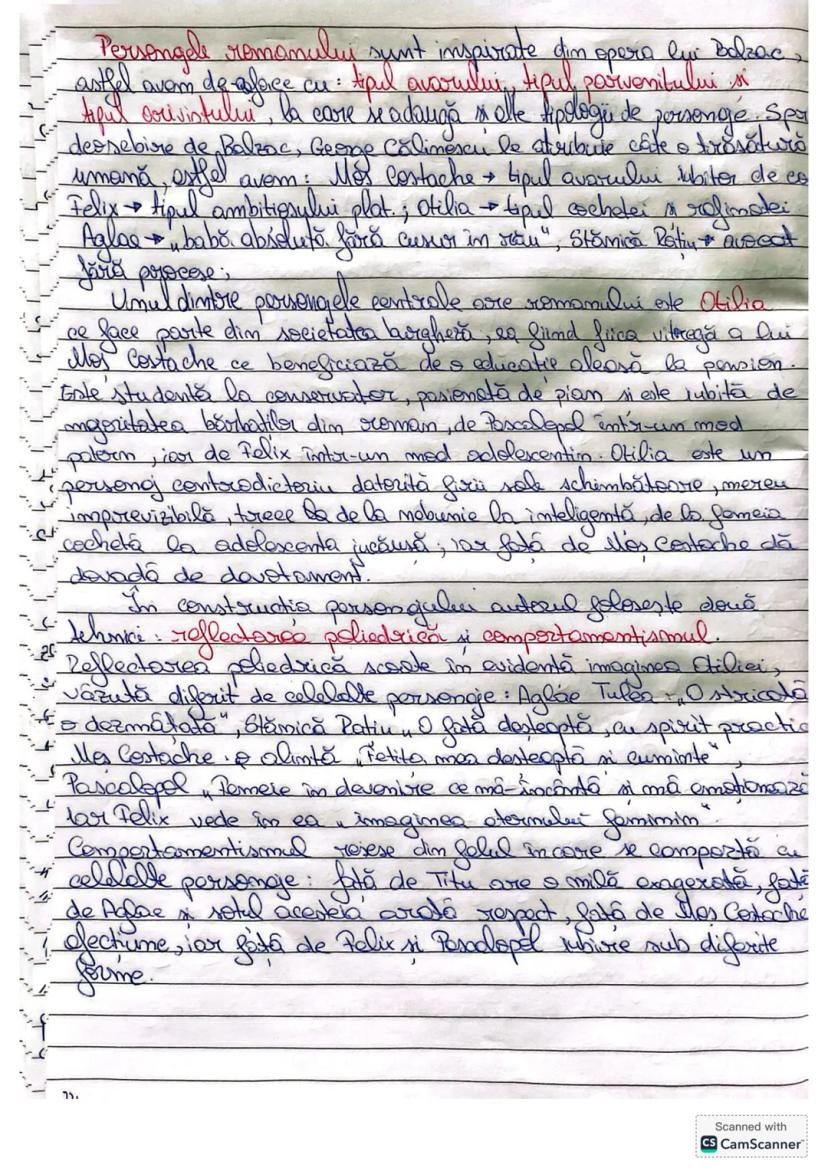 Personajele romanului sunt inspirate din opera lui Balzac,
astfel avem de-aface cu: tipul avarului, tipul parvenitului și
tipul arivistului, la care se adaugă și alte tipologii de personaje. Spr
deosebire de Balzac, George Călinescu le atribuie câte o trăsătură
umană, astfel avem: Moș Costache → tipul avarului iubitor de co
Felix → tipul ambițiosului plat.; Otilia → tipul cochetei și rafinatei
Aglae → „babă absolută fără cusur în rău", Stănică Rațiu → avocat
fără procese;
Unul dintre personajele centrale are romanului este Otilia
ce face parte din societatea burgheză, ea fiind fiica vitregă a lui
Moș Costache ce beneficiază de o educație aleasă la pension.
Este studentă la conservator, pasionată de pian și este iubită de
majoritatea bărbaților din roman, de Pascalopol într-un mod
patern, iar de Felix într-un mod adolescentin. Otilia este un
personaj contradictoriu datorită firii sale schimbătoare, mereu
imprevizibilă, trece de la nebunie la inteligență, de la femeia
cochetă la adolescenta jucăușă; iar față de Moș Costache dă
dovadă de devotament.
În construcția personajului autorul folosește două
tehnici: reflectarea poliedrică și comportamentismul.
Reflectarea poliedrică scoate în evidență imaginea Otiliei,
văzută diferit de celelalte personaje: Aglae Tulea: „O stricată
o dezmățată", Stănică Rațiu „O fată deșteaptă, cu spirit practic
Moș Costache o alintă „Fetița mea deșteaptă și cuminte",
Pascalopol „Femeie în devenire ce mă-încântă și mă emoționează
iar Felix vede în ea „imaginea eternului feminin"
Comportamentismul reiese din felul în care se comportă cu
celelalte personaje: față de Titu are o milă exagerată, față
de Aglae și soțul acesteia arată respect, față de Moș Costache
afecțiune, iar față de Felix și Pascalopol iubire sub diferite
forme.
Scanned with
CS CamScanner